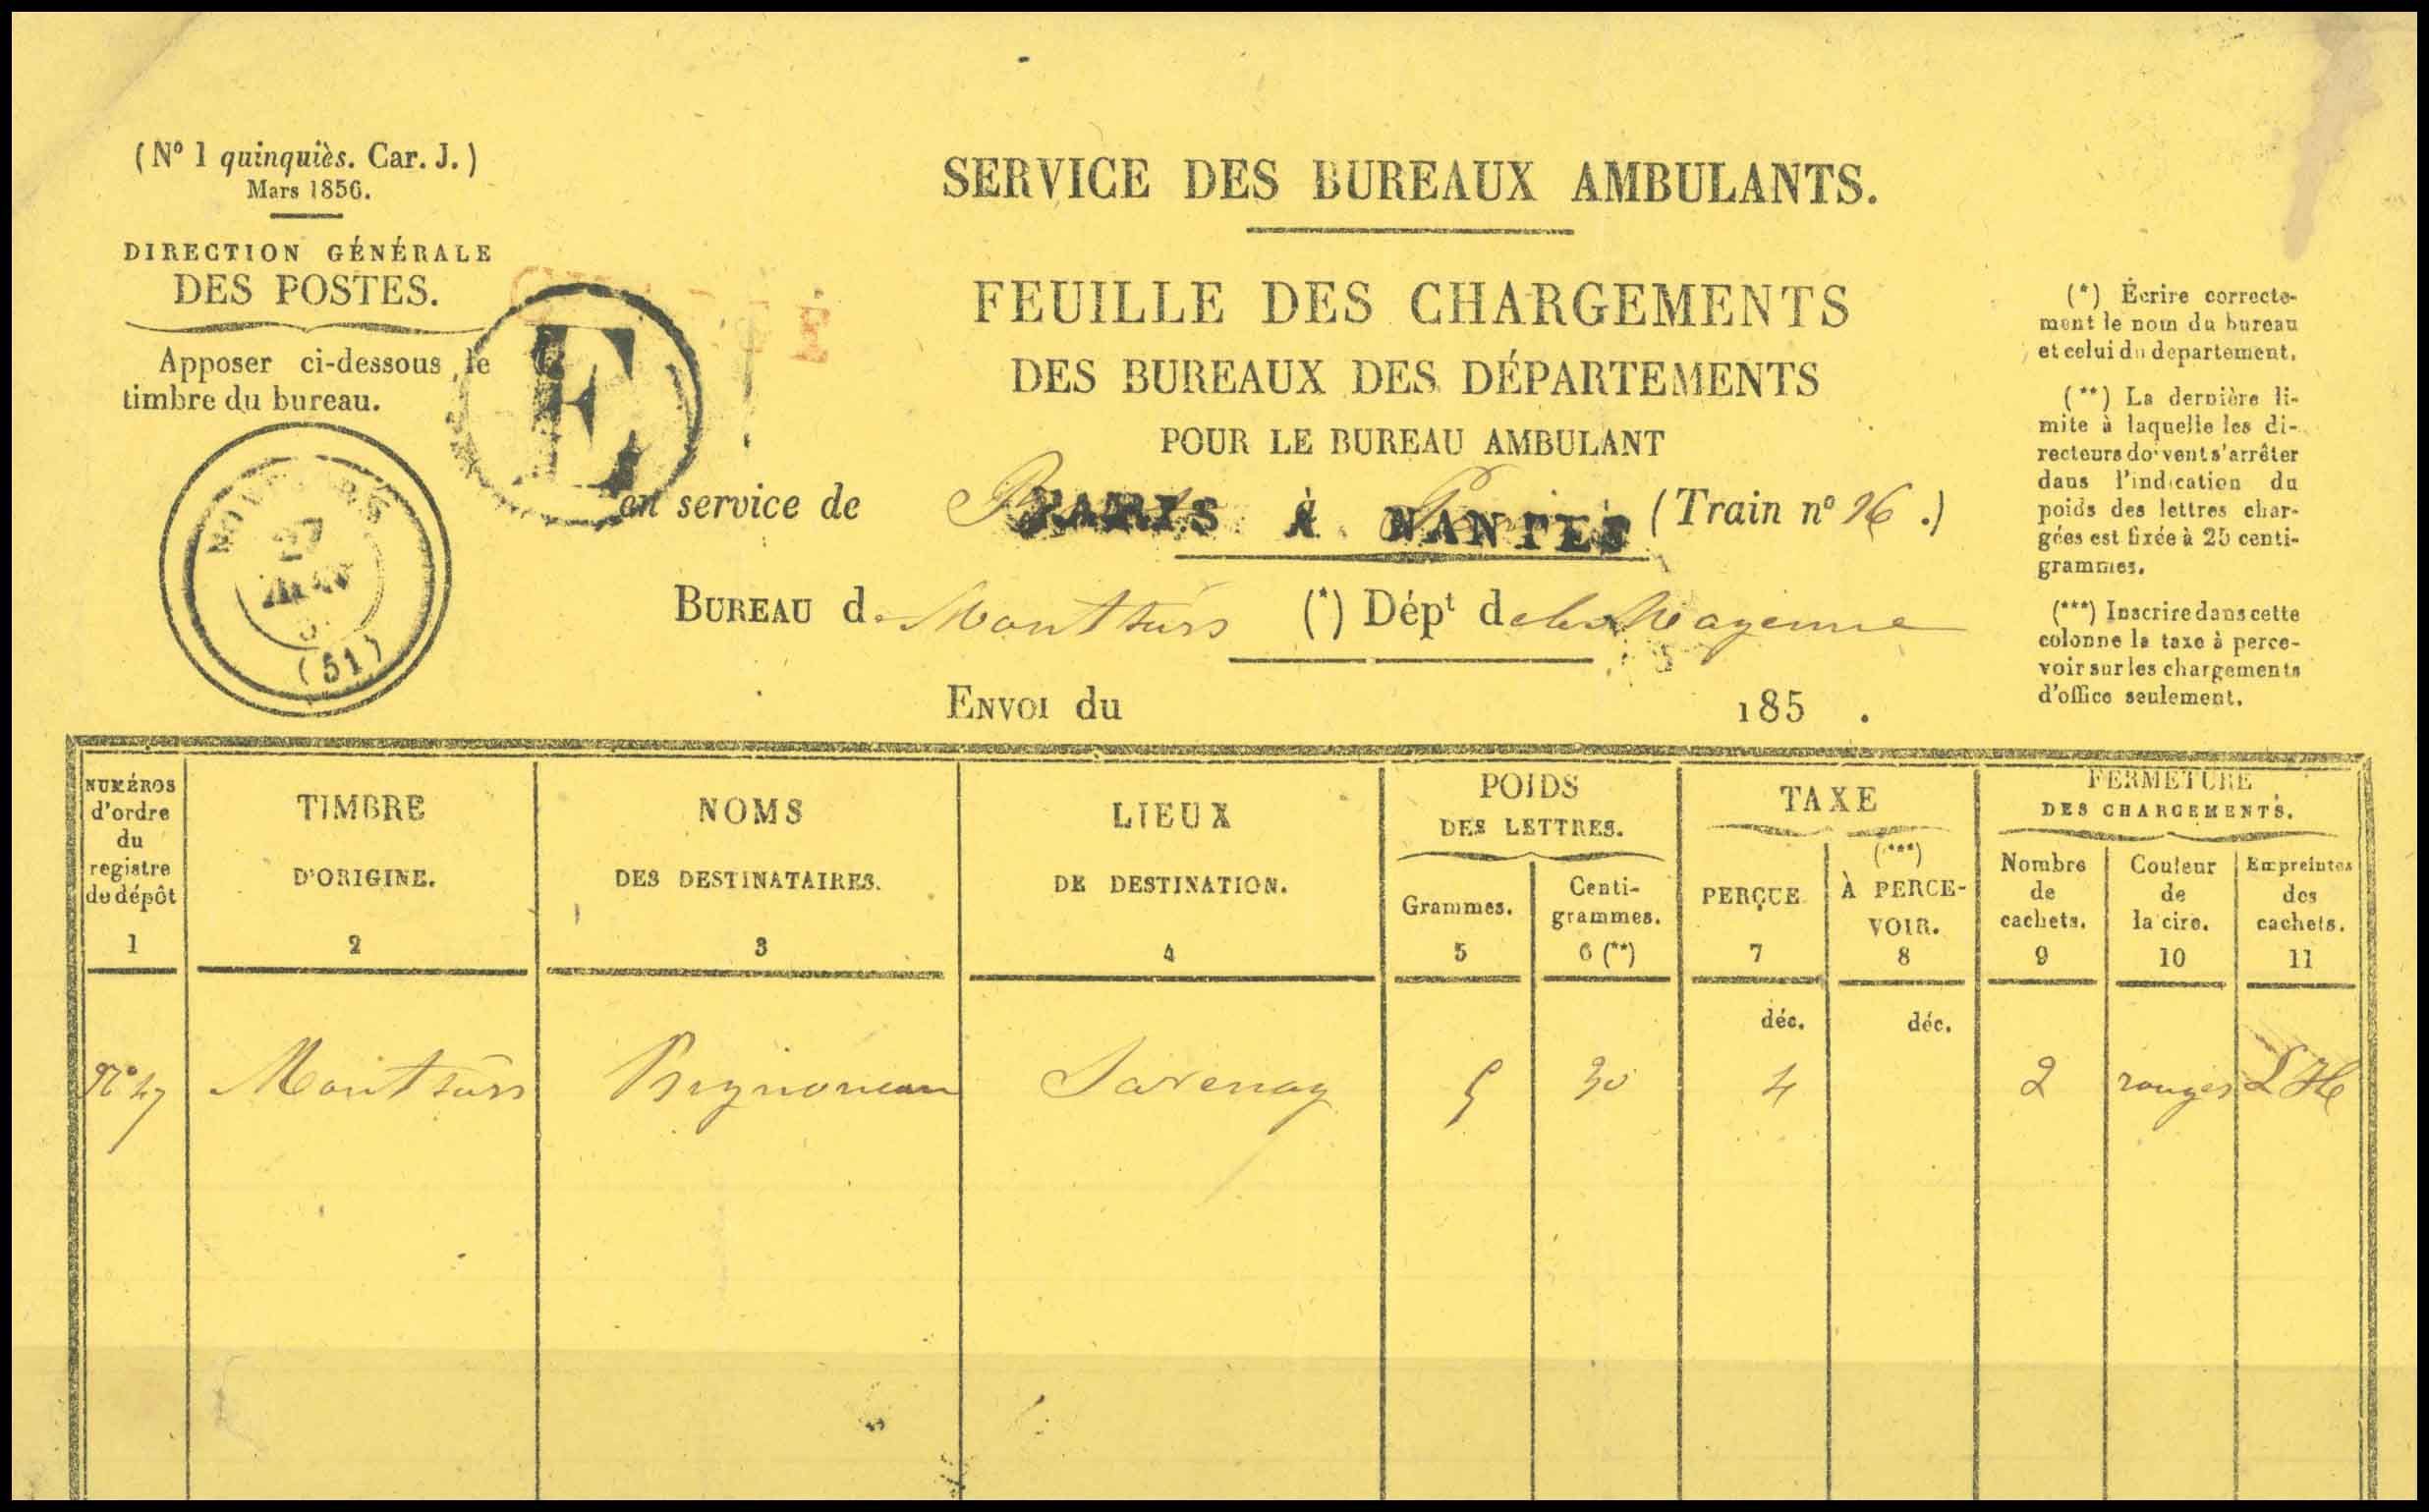 (N° 1 quinquiès. Car. J.)
Mars 1856.
DIRECTION GÉNÉRALE
DES POSTES.
Apposer ci-dessous le
timbre du bureau.
27
(51)
E
SERVICE DES BUREAUX AMBULANTS.
FEUILLE DES CHARGEMENTS
DES BUREAUX DES DÉPARTEMENTS
POUR LE BUREAU AMBULANT
en service de PARIS À NANTES (Train n° 26.)
BUREAU d. Montsûrs (*) Dépt de la Mayenne
ENVOI du 185 .
(*) Écrire correcte-
ment le nom du bureau
et celui du departement.
(**) La dernière li-
mite à laquelle les di-
recteurs doivent s'arrêter
dans l'indication du
poids des lettres char-
gées est fixée à 25 centi-
grammes.
(***) Inscrire dans cette
colonne la taxe à perce-
voir sur les chargements
d'office seulement.
NUMÉROS
d'ordre
du
registre
de dépôt
1
TIMBRE
D'ORIGINE.
2
NOMS
DES DESTINATAIRES.
3
LIEUX
DE DESTINATION.
4
POIDS
DES LETTRES.
Grammes.
5
Centi-
grammes.
6 (**)
TAXE
PERÇUE
7
(***)
À PERCE-
VOIR.
8
FERMETURE
DES CHARGEMENTS.
Nombre
de
cachets.
9
Couleur
de
la cire.
10
Empreintes
des
cachets.
11
déc. déc.
N° 47 Montsûrs Savenay 5 30 4 2 rouges LH